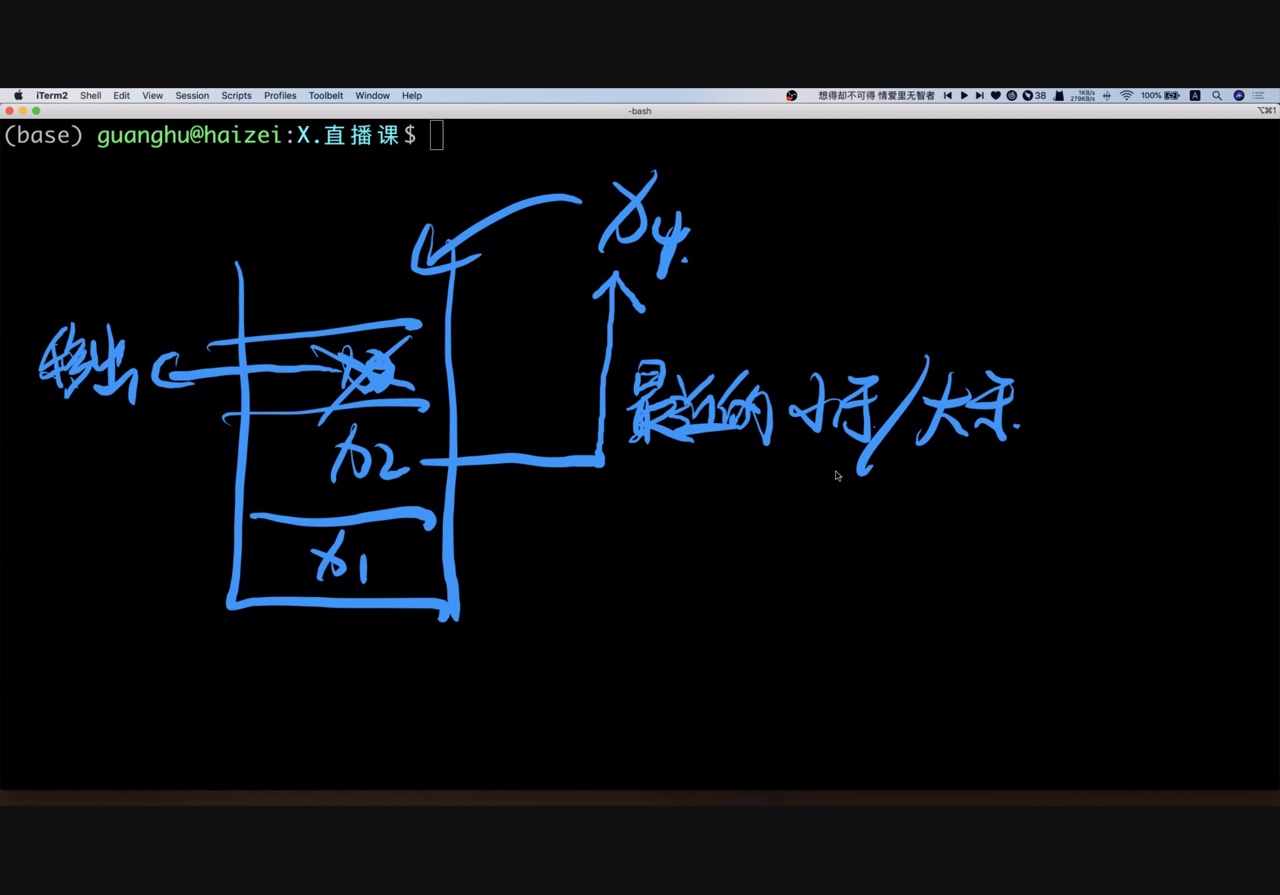 iTerm2 Shell Edit View Session Scripts Profiles Toolbelt Window Help 想得却不可得 情爱里无智者 38 1KB/s 279KB/s 100% A
-bash ⌥⌘1
(base) guanghu@haizei:X.直播课$
x4.
移出
最近的 小于/大于.
x2
x1